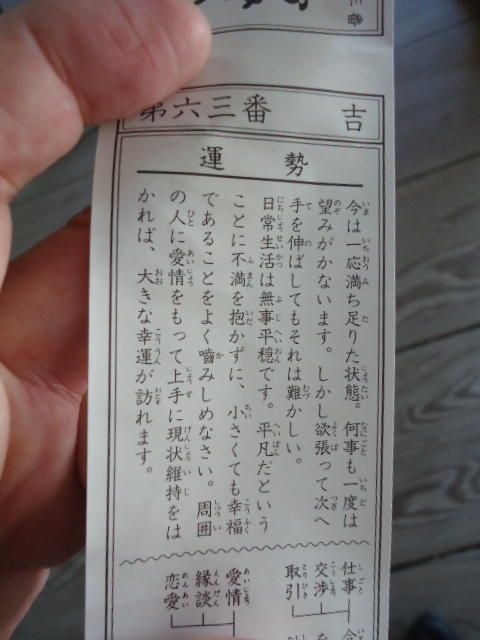 第六三番 吉
運勢
今は一応満ち足りた状態。何事も一度は
望みがかないます。しかし欲張って次へ
手を伸ばしてもそれは難かしい。
日常生活は無事平穏です。平凡だという
ことに不満を抱かずに、小さくても幸福
であることをよく嚙みしめなさい。周囲
の人に愛情をもって上手に現状維持をは
かれば、大きな幸運が訪れます。
仕事
交渉
取引
愛情
縁談
恋愛